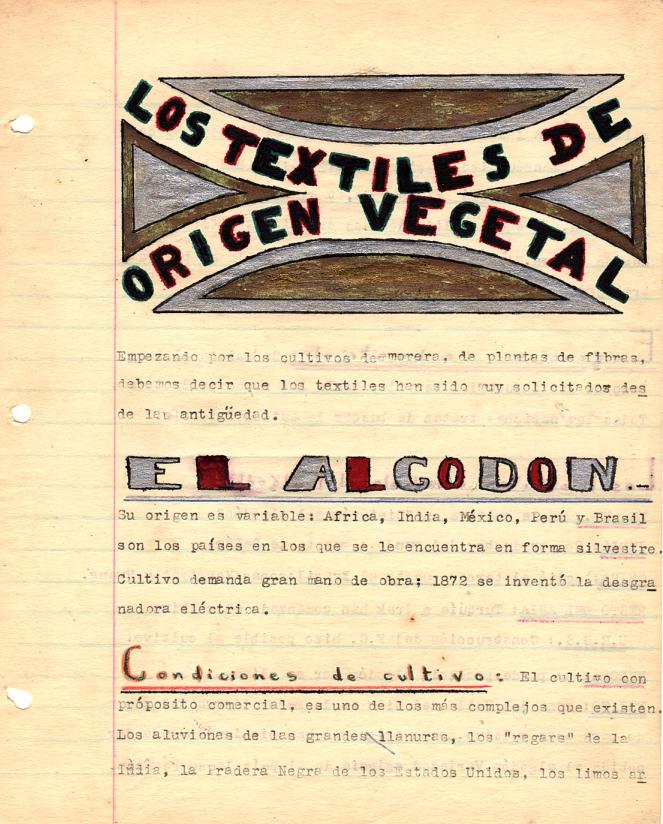 LOS TEXTILES DE
ORIGEN VEGETAL
Empezando por los cultivos de morera, de plantas de fibras,
debemos decir que los textiles han sido muy solicitados des
de lau antigüedad.
EL ALGODON_
Su origen es variable: Africa, India, México, Perú y Brasil
son los países en los que se le encuentra en forma silvestre.
Cultivo demanda gran mano de obra; 1872 se inventó la desgra
nadora eléctrica.
Condiciones de cultivo: El cultivo con
própósito comercial, es uno de los más complejos que existen.
Los aluviones de las grandes llanuras, los "regars" de la
India, la Pradera Negra de los Estados Unidos, los limos ar